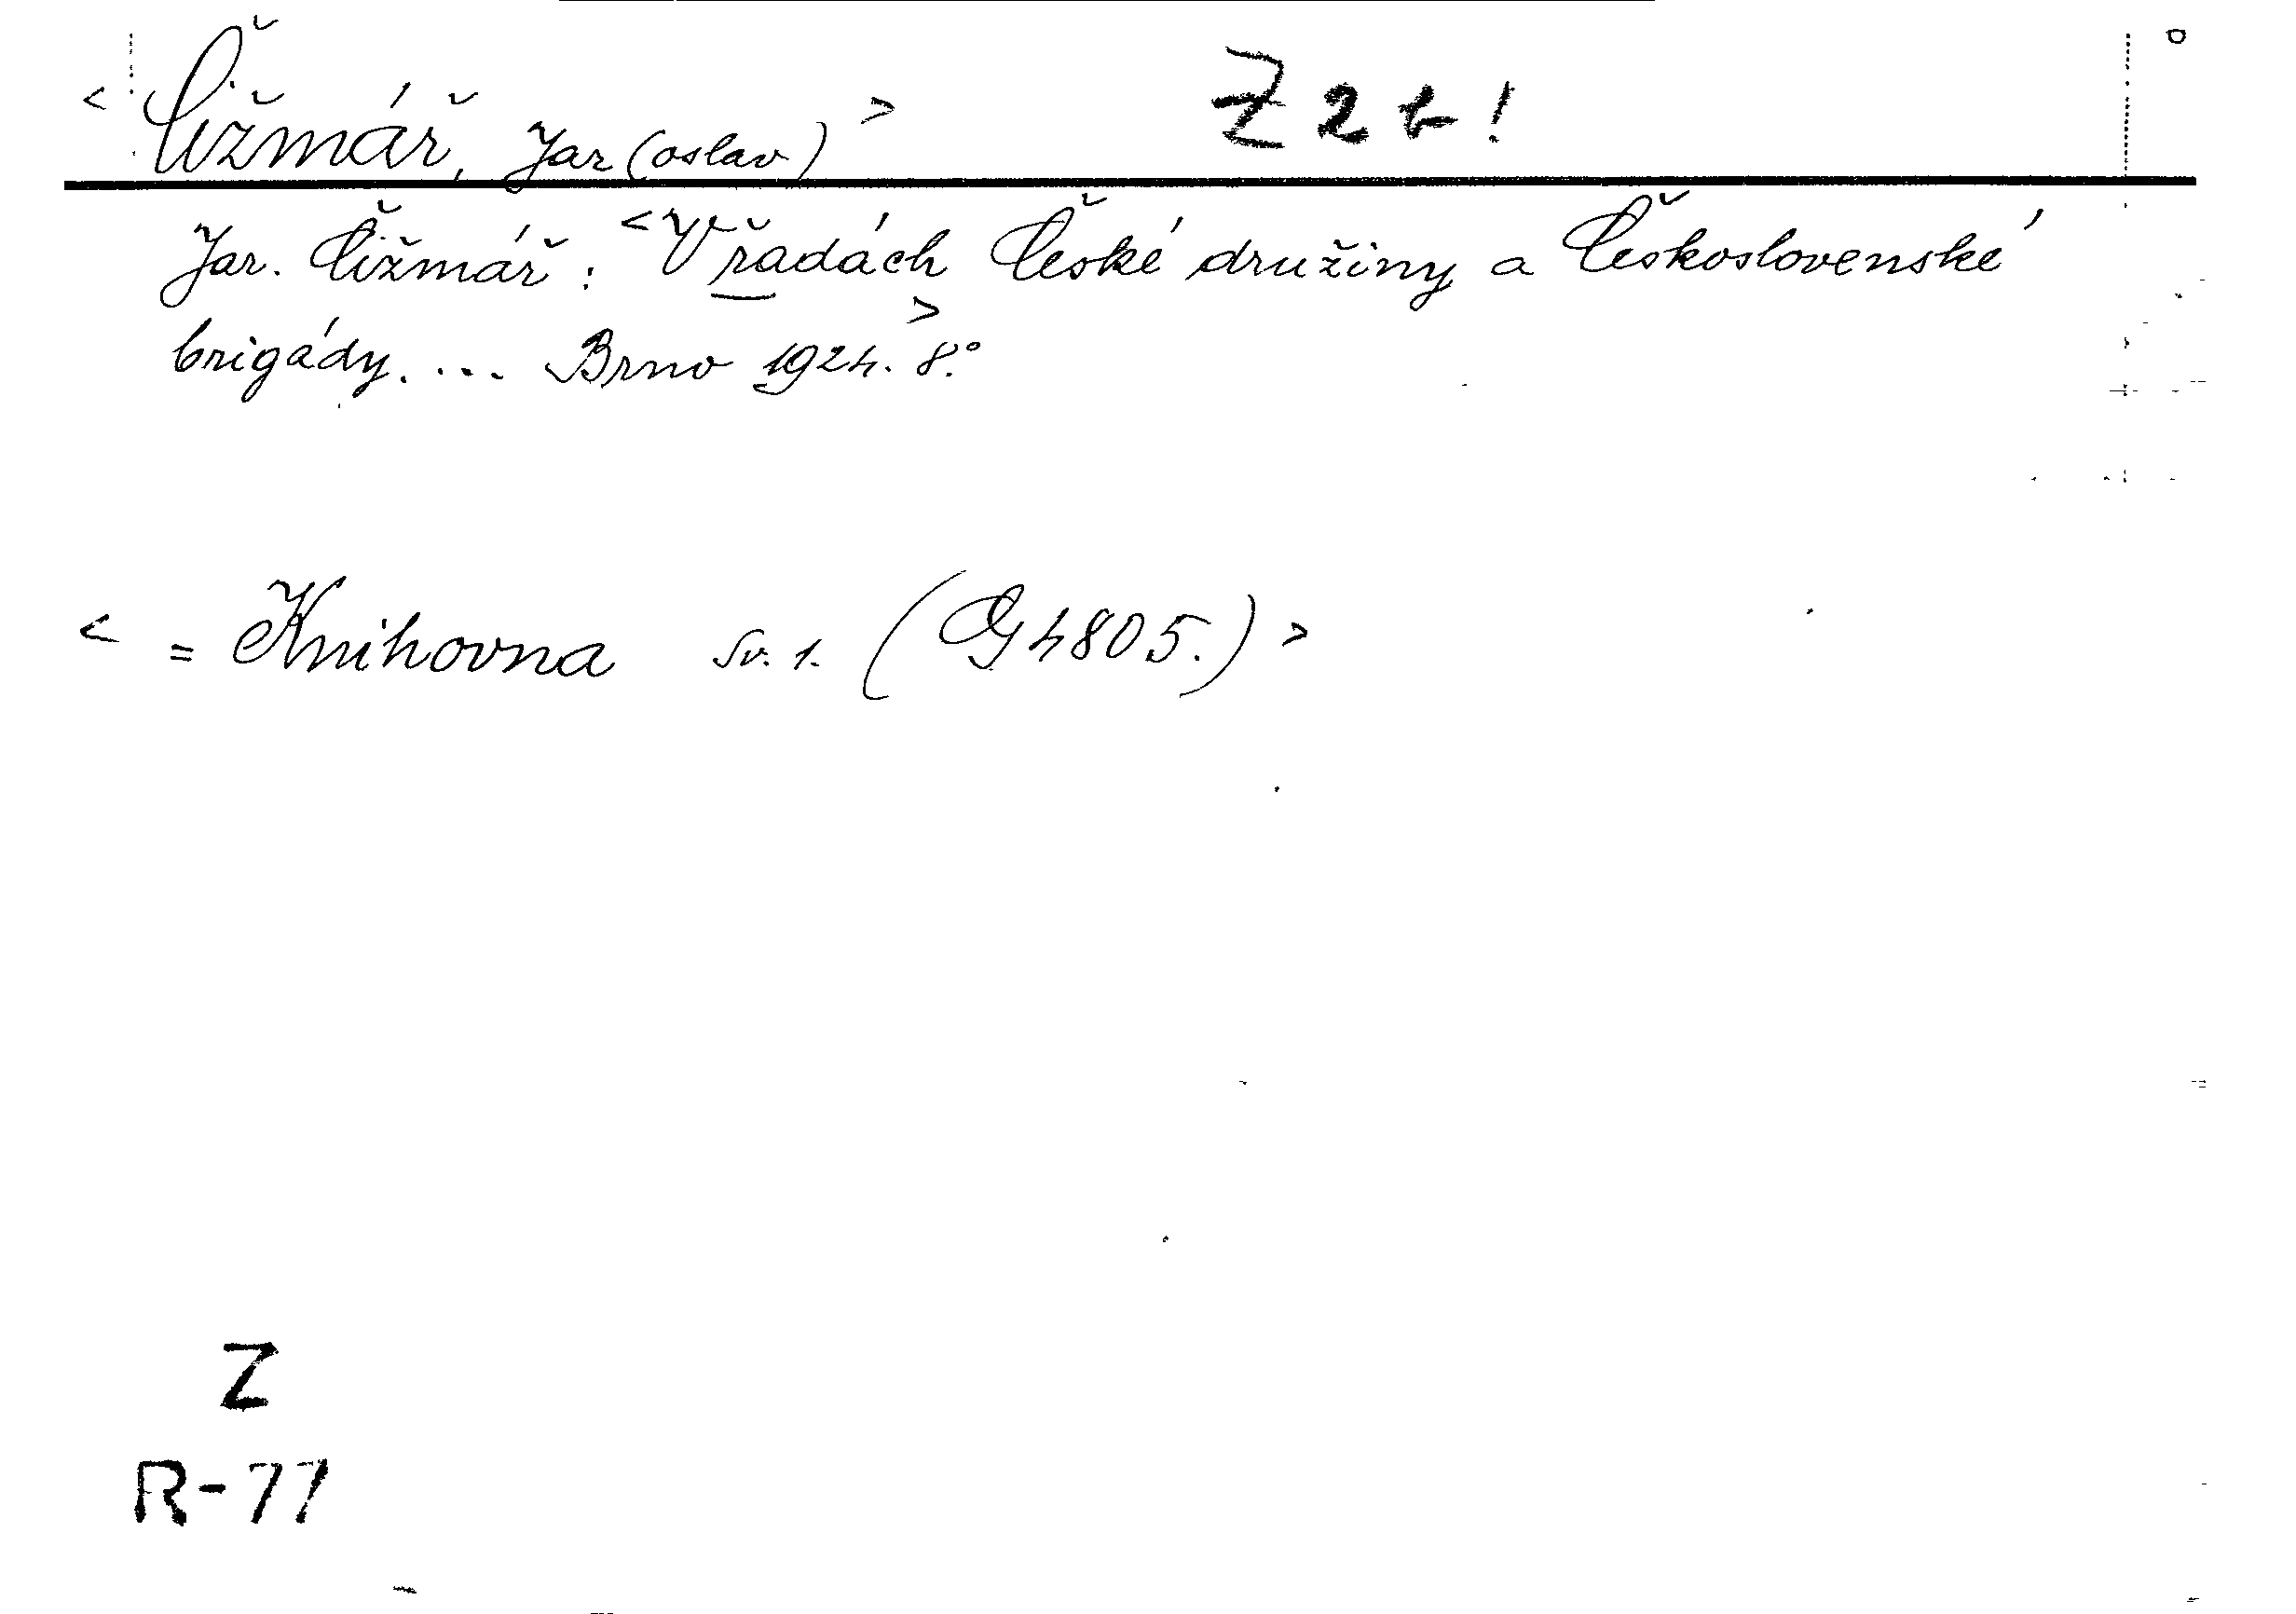 < Čižmář, Jar(oslav) > Z 2 t !
Jar. Čižmář: < V řadách České družiny a Československé
brigády. ... > Brno 1924. 8.°
< = Knihovna Sv. 1. (G 4805.) >
Z
R-77